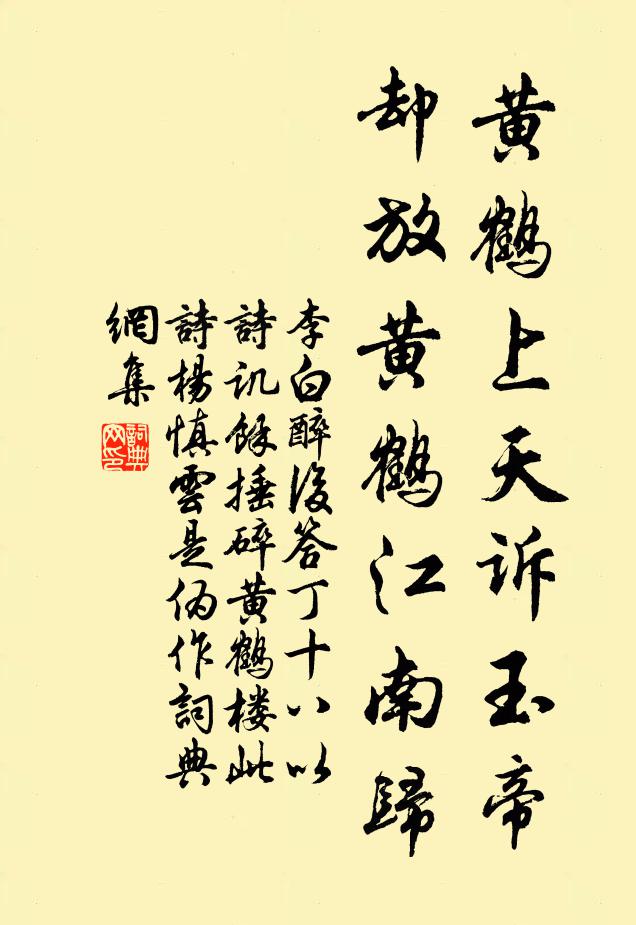 黄鶴上天訴玉帝
却放黄鶴江南歸
李白醉後答丁十八以
詩訊餘捶碎黄鶴楼此
詩楊慎雲是偽作詞典
網集
詞典
网印